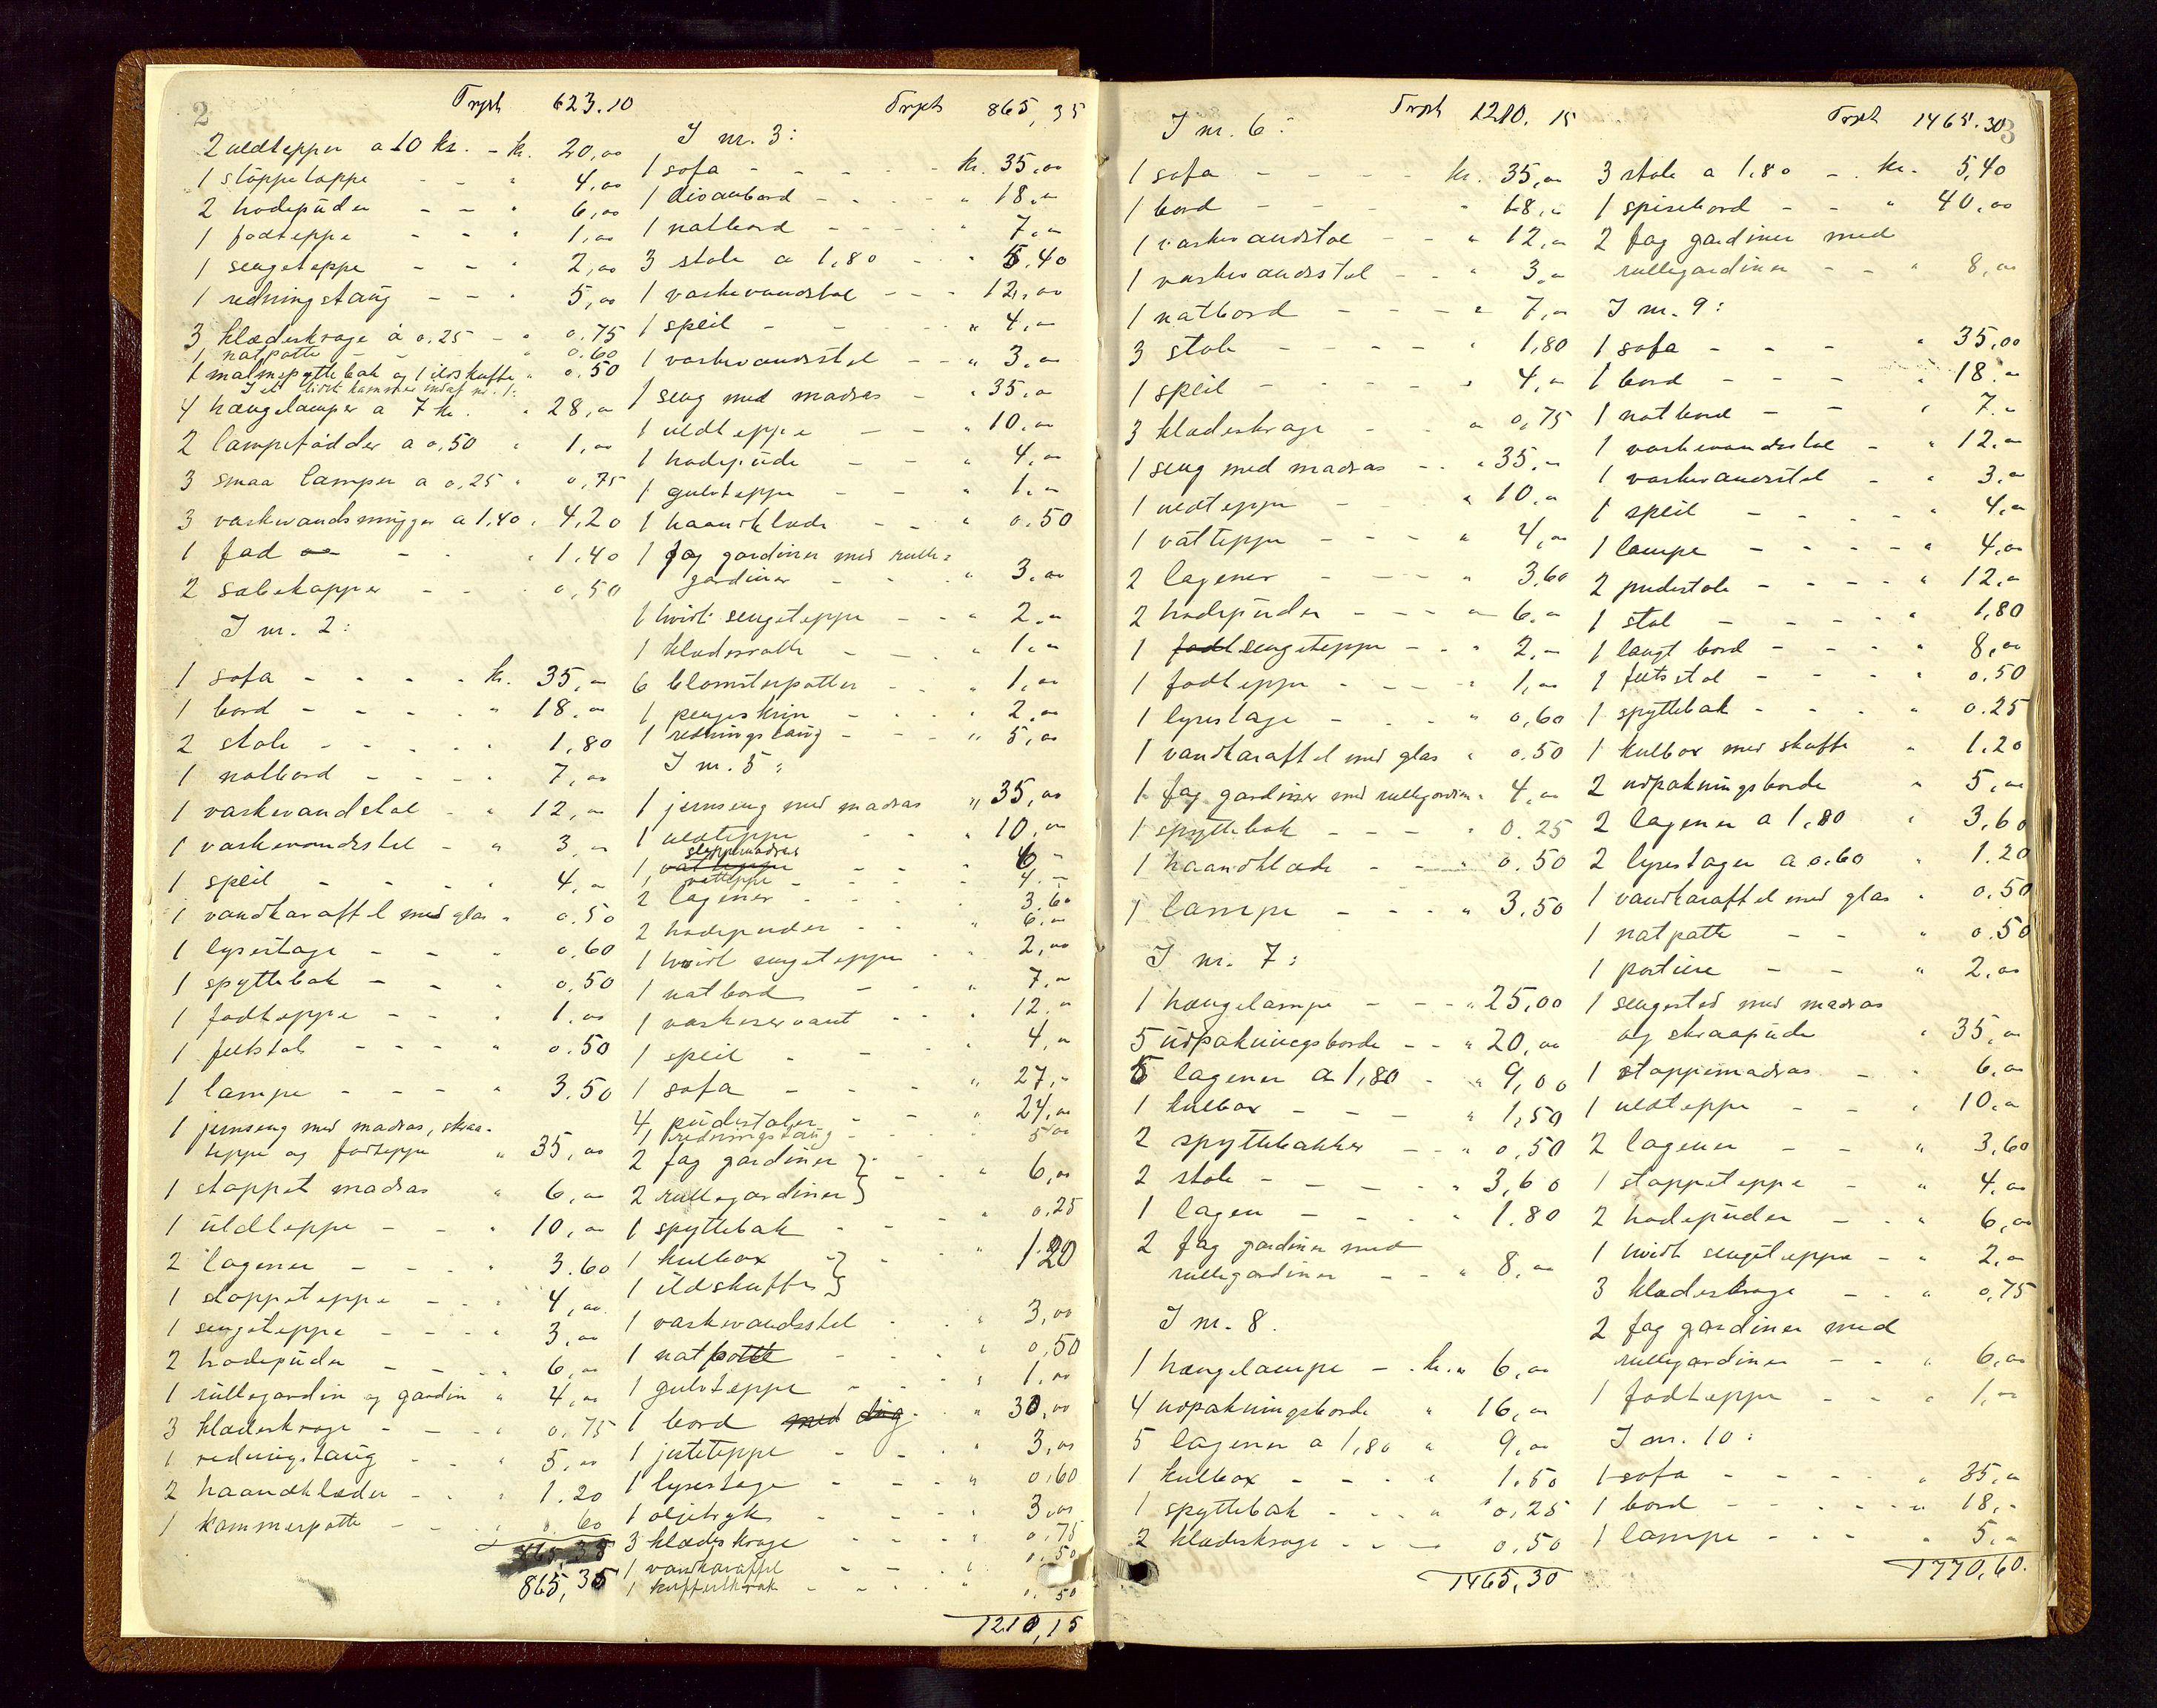 2
Trpt 623.10
2 uldtepper a 10 kr. - kr. 20,00
1 stoppetæppe - - " 4,00
2 hodepüder - - " 6,00
1 fodteppe - - " 1,00
1 sengeteppe - - " 2,00
1 redningstaüg - - " 5,00
3 klædeskroge à 0.25 - " 0.75
1 natpotte - - " 0.60
1 malmspyttebak og 1 ildskuffe " 0.50
I et lidet kammer indaf nr. 1:
4 hængelamper a 7 kr. " 28,00
2 lampefødder a 0.50 " 1,00
3 smaa lamper a 0.25 " 0,75
3 vaskevandsmügger a 1,40 " 4,20
1 fad - - " 1.40
2 sæbekopper - - " 0,50
I nr. 2:
1 sofa - - - - kr. 35,00
1 bord - - - - " 18.00
2 stole - - - - " 1,80
1 natbord - - - " 7,00
1 vaskevandstol - " 12,00
1 vaskevandsstel - " 3,00
1 speil - - - " 4,00
1 vandkaraffel med glas " 0.50
1 lysestage - - - 0.60
1 spyttebak - - - 0.50
1 fodteppe - - " 1.00
1 feltstol - - - " 0.50
1 lampe - - - - " 3.50
1 jernseng med madras, skraa-
teppe og fodteppe " 35,00
1 stoppet madras " 6,00
1 üldteppe - - " 10,00
2 lagener - - - " 3.60
1 stoppeteppe - - " 4,00
1 sengeteppe - - - " 3,00
2 hodepüder - - - " 6,00
1 rüllegardin og gardin " 4,00
3 klædeskroge - - - " 0,75
1 redningstaüg - - " 5,00
2 haandklæder - - " 1.20
1 kammerpotte - - " 0.60
865,35
Trpt 865,35
I nr. 3:
1 sofa - - - - - kr. 35,00
1 divanbord - - - " 18,00
1 natbord - - - - 7,00
3 stole a 1,80 - " 5.40
1 vaskevandstol - - - 12,00
1 speil - - - " 4,00
1 vaskevandsstel - - " 3,00
1 seng med madras - " 35,00
1 uldteppe - - " 10,00
1 hodepüde - - " 4,00
1 gulvteppe - - " 1,00
1 haandklæde - - " 0.50
1 fag gardiner med rulle-
gardiner - - " 3,00
1 hvidt sengeteppe - - " 2,00
1 klædesrolle - - " 1,00
6 blomsterpotter - - " 1,00
1 pengeskrin - - - " 2,00
1 redningstaüg - - - " 5,00
I nr. 5:
1 jernseng med madras " 35,00
1 uldteppe - - " 10,00
1 stoppemadras - - " 6 -
vatteppe - - - 4 -
2 lagener - - - - 3.60
2 hodepuder - - " 6,00
1 hvidt sengeteppe - - 2,00
1 natbord - - " 7,00
1 vaskeservant - - - 12,00
1 speil - - - " 4,00
1 sofa - - - " 27,-
4 püdestoler - - " 24,00
1 redningstaüg - - - 5 00
2 fag gardiner } - - " 6,00
2 rüllegardiner }
1 spyttebak - - " 0.25
1 kulbox } - - " 1.20
1 ildskuffe }
1 vaskevandsstel - " 3,00
1 natpotte - - - " 0,50
1 gulvteppe - - - " 1,00
1 bord med düg - " 30,00
1 juteteppe - - " 3,00
1 lysestage - - - " 0.60
1 oljetryk - - - 3,00
3 klædeskroge - - - " 0,75
1 vandkaraffel - - " 0.50
1 kuffertkrak - - - " 0.50
1210,15
3
Trpt 1210.15
I nr. 6:
1 sofa - - - - kr. 35,00
1 bord - - - - " 18,00
1 vaskevandstol - - " 12,00
1 vaskevandsstel - - " 3,00
1 natbord - - - " 7,00
3 stole - - - - " 1,80
1 speil - - - - " 4,00
3 klædeskroge - - " 0,75
1 seng med madras - - " 35,-
1 uldteppe - - " 10,00
1 vatteppe - - - " 4,00
2 lagener - - - " 3,60
2 hodepüder - - - " 6,00
1 fodt sengeteppe - - " 2,-
1 fodteppe - - - " 1,00
1 lysestage - - - " 0,60
1 vandkaraffel med glas " 0.50
1 fag gardiner med rullegardin " 4,00
1 spyttebak - - - " 0.25
1 haandklæde - - " 0.50
1 lampe - - - " 3.50
I nr. 7:
1 hængelampe - - - " 25,00
5 üdpakningsborde - - " 20,00
5 lagener a 1,80 - " 9,00
1 kulbox - - - " 1,50
2 spyttebakker - - " 0,50
2 stole - - - - " 3,60
1 lagen - - - " 1.80
2 fag gardiner med
rullegardiner - - " 8,00
I nr. 8.
1 hængelampe - kr. " 6,00
4 udpakningsborde " 16,00
5 lagener a 1,80 " 9,00
1 kulbox - - - " 1.50
1 spyttebak - - - " 0,25
2 klædeskroge - - - 0,50
1465,30
Trpt 1465.30
3 stole a 1,80 - kr. 5,40
1 spisebord - - " 40,00
2 fag gardiner med
rullegardiner - - " 8,00
I nr. 9:
1 sofa - - - " 35,00
1 bord - - - " 18.-
1 natbord - - " 7.-
1 vaskevandsstol - " 12,-
1 vaskevandsstel - " 3,-
1 speil - - - - " 4,-
1 lampe - - - - " 4,00
2 pudestole - - - - " 12,-
1 stol - - - - " 1,80
1 langt bord - - - " 8,00
1 feltstol - - - " 0.50
1 spyttebak - - - " 0.25
1 kulbox med skuffe " 1.20
2 udpakningsborde " 5,00
2 lagener a 1,80 " 3,60
2 lysestager a 0.60 " 1.20
1 vandkaraffel med glas " 0,50
1 natpotte - - " 0.50
1 portiere - - " 2,00
1 sengested med madras
og skraapude " 35,00
1 stoppemadras - - 6,00
1 uldteppe - - " 10,00
2 lagener - - " 3,60
1 stoppeteppe - " 4,00
2 hodepüder - - " 6,00
1 hvidt sengeteppe - " 2,00
3 klædeskroge - - " 0,75
2 fag gardiner med
rullegardiner - - " 6,00
1 fodteppe - - " 1,00
I nr. 10:
1 sofa - - - - " 35,00
1 bord - - - - " 18,-
1 lampe - - - " 5,-
1770,60.